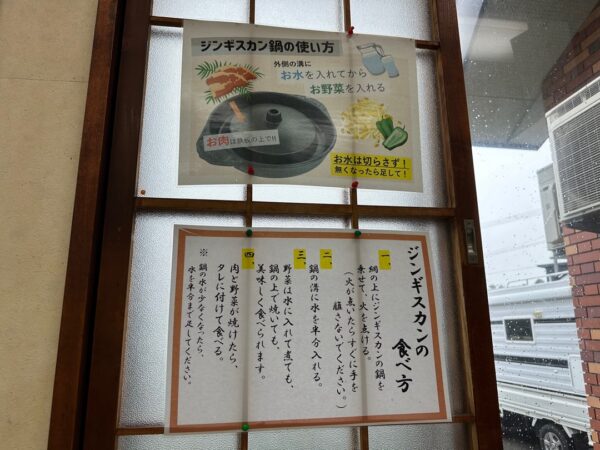 ジンギスカン鍋の使い方
外側の溝に
お水を入れてから
お野菜を入れる
お肉は鉄板の上で!!
お水は切らさず！
無くなったら足して！
ジンギスカンの
食べ方
一、
網の上にジンギスカンの鍋を
乗せて、火を点ける。
（火が点いたらすぐに手を
離さないでください。）
二、
鍋の溝に水を半分入れる。
三、
野菜は水に入れて煮ても、
鍋の上で焼いても、
美味しく食べられます。
四、
肉と野菜が焼けたら、
タレに付けて食べる。
※ 鍋の水が少なくなったら、
水を半分まで足してください。